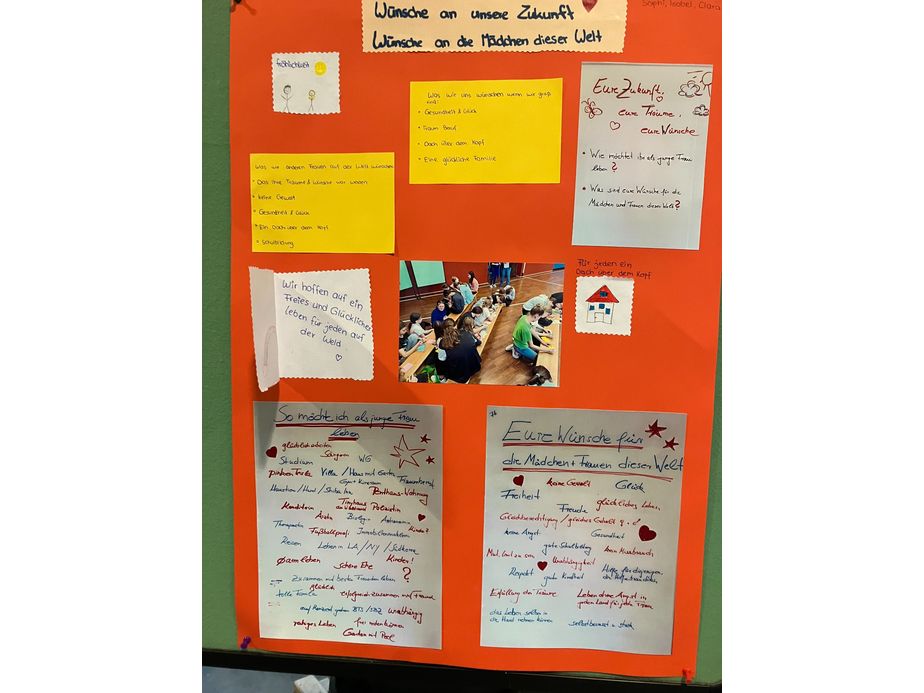 Sophi, Isabel, Clara
Wünsche an unsere Zukunft
Wünsche an die Mädchen dieser Welt
fröhlichkeit
Was wir uns wünschen wenn wir groß
sind:
• Gesundheit & Glück
• Traum Beruf
• Dach über dem Kopf
• Eine glückliche Familie
Eure Zukunft,
eure Träume,
eure Wünsche
• Wie möchtet ihr als junge Frau
leben?
• Was sind eure Wünsche für die
Mädchen und Frauen dieser Welt?
Was wir anderen Frauen auf der Welt wünschen
• Das ihre Träume & Wünsche war werden
• keine Gewalt
• Gesundheit & Glück
• Ein Dach über dem Kopf
• Schulbildung
Für jeden ein
Dach über dem Kopf
Wir hoffen auf ein
Freies und Glückliches
leben für jeden auf
der Weld
So möchte ich als junge Frau
leben
glücklich arbeiten
Sängerin
Studium WG
Villa / Haus mit Garten
Traumberuf
Penthaus-Wohnung
Konditorin Polizistin
Ärztin Biologin Astronomin
Therapeutin Fußballprof. Kinder?
Reisen Leben in LA / NY / Südkorea
Kinder!
schöne Ehe ?
Zusammen mit besten Freunden leben
tolle Familie erfolgreich zusammen mit Freunde
unabhängig
ruhiges Leben
Garten mit Pool
Eure Wünsche für
die Mädchen + Frauen dieser Welt
keine Gewalt Glück
Freiheit
Freude glückliches Leben
Gleichberechtigung / gleiches Gehalt
keine Angst Gesundheit
gute Schulbildung
Unabhängigkeit
Respekt gute Kindheit
Erfüllung der Träume Leben ohne Angst in
jedem Land für jede Frau
das Leben selbst in
die Hand nehmen können selbstbewusst u stark